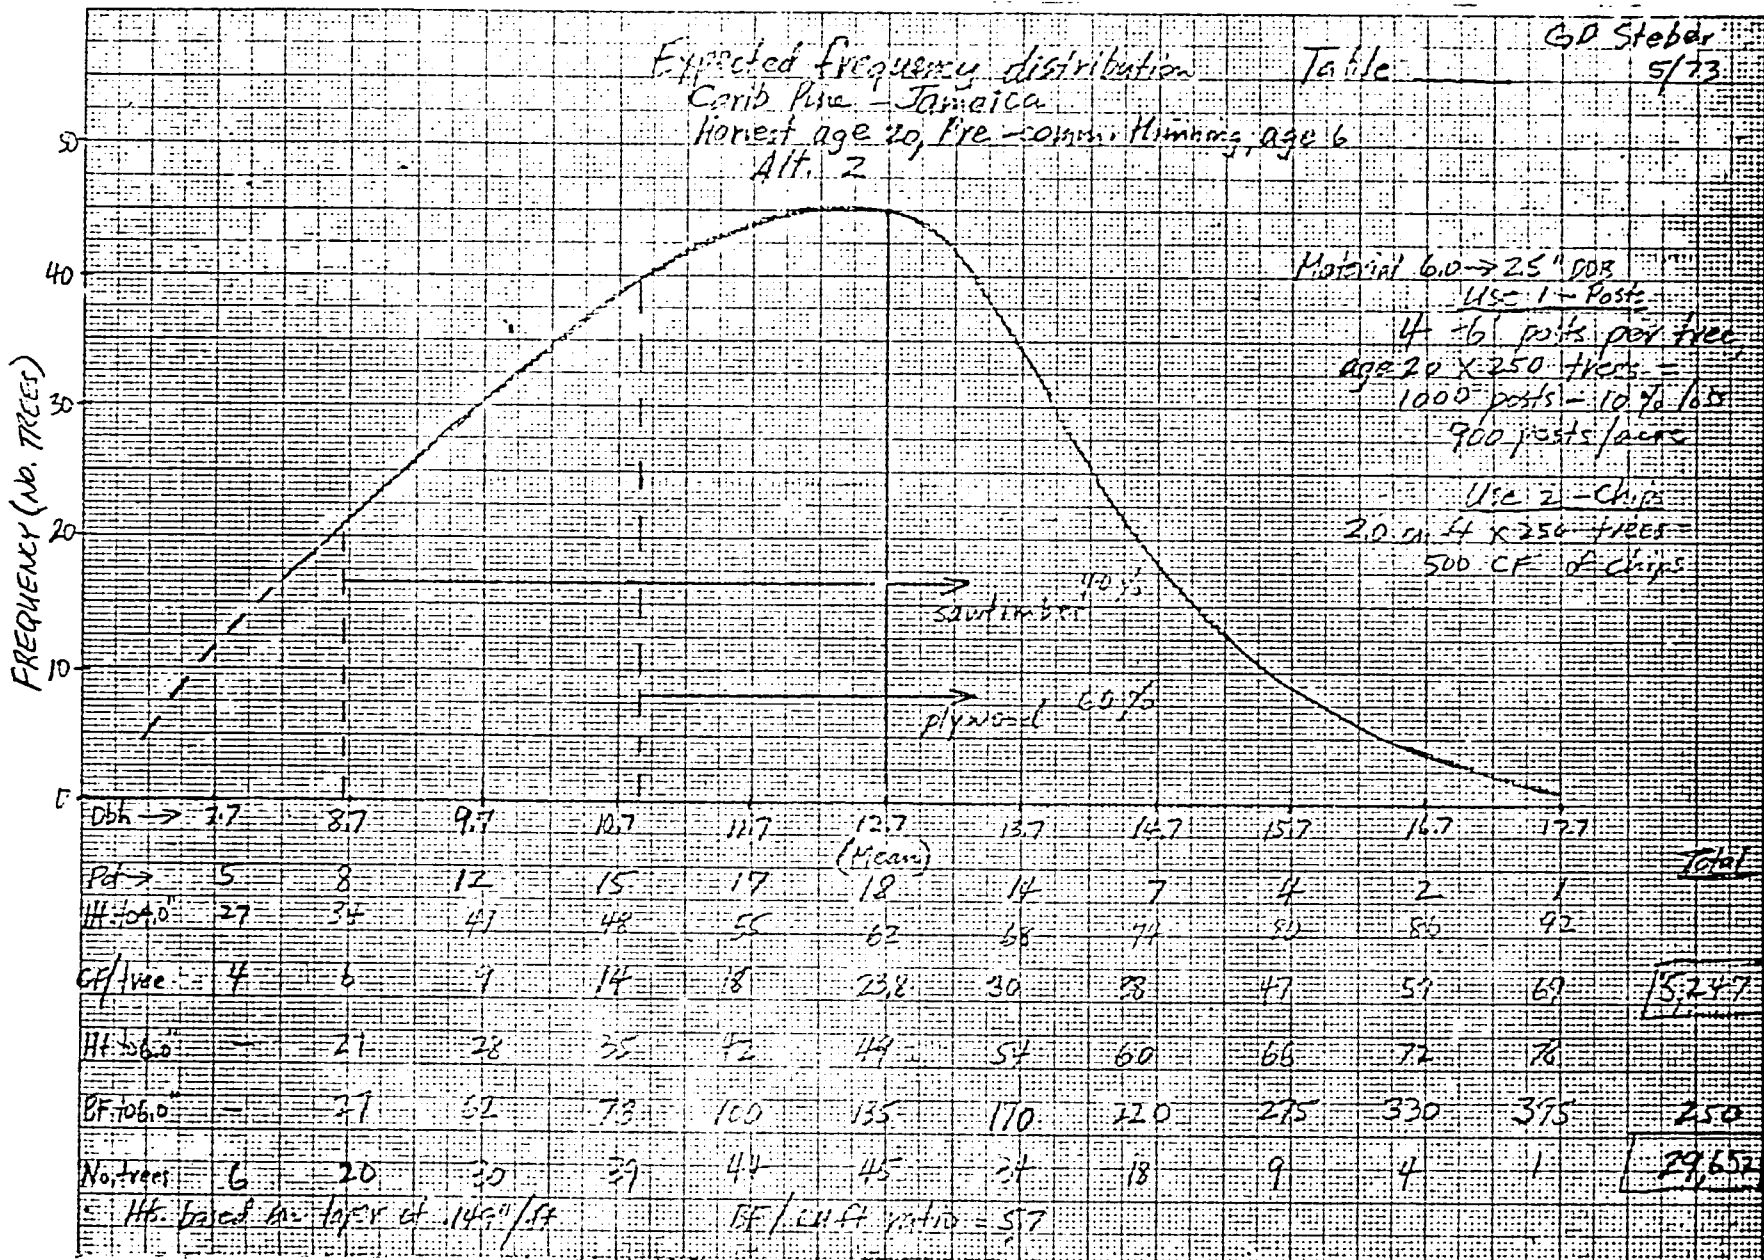 GD Steber
5/73
Expected frequency distribution
Table
Carib Pine - Jamaica
Harvest age 20, Pre-comm. thinning, age 6
Alt. 2
FREQUENCY (NO. TREES)
50
40
30
20
10
0
Material 6.0 → 2.5" DOB
Use 1 - Posts
4 - 6' posts per tree,
age 20 x 250 trees =
1000 posts - 10% loss
900 posts/acre
Use 2 - Chips
2.0 x 250 trees =
500 CF of chips
40%
sawtimber
60%
plywood
Dbh → 7.7 8.7 9.7 10.7 11.7 12.7 13.7 14.7 15.7 16.7 17.7
(Mean)
Total
Pct → 5 8 12 15 17 18 14 7 4 2 1
Ht to 4.0" 27 34 41 48 55 62 68 74 80 86 92
CF/tree 4 6 9 14 18 23.8 30 38 47 57 67 5,247
Ht to 6.0" - 21 28 35 42 49 54 60 66 72 76
BF to 6.0" - 52 73 100 135 170 220 275 330 395 250
No. trees 6 20 30 39 44 45 34 18 9 4 1 29,652
Hts. based on taper of .149"/ft
BF/cu ft ratio = 5.7